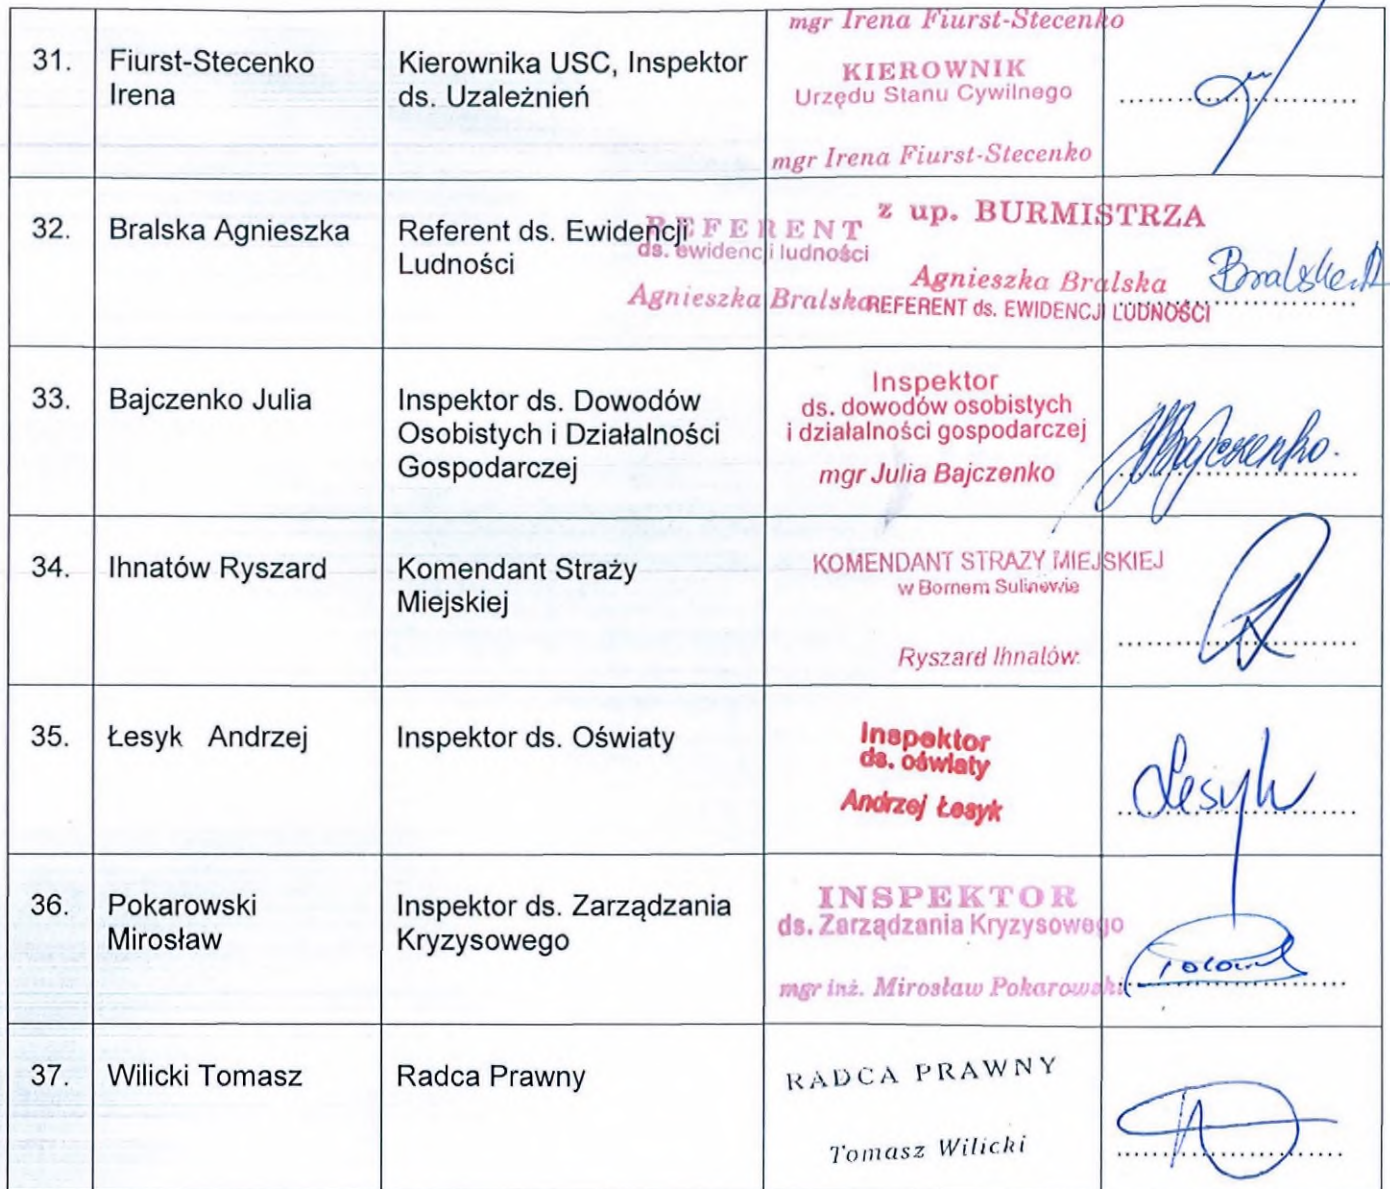 mgr Irena Fiurst-Stecenko
31.
Fiurst-Stecenko
Irena
Kierownika USC, Inspektor
ds. Uzależnień
KIEROWNIK
Urzędu Stanu Cywilnego
mgr Irena Fiurst-Stecenko
32.
Bralska Agnieszka
Referent ds. Ewidencji
Ludności
REFERENT
ds. ewidencji ludności
Agnieszka Bralska
z up. BURMISTRZA
Agnieszka Bralska
REFERENT ds. EWIDENCJI LUDNOŚCI
Bralska A
33.
Bajczenko Julia
Inspektor ds. Dowodów
Osobistych i Działalności
Gospodarczej
Inspektor
ds. dowodów osobistych
i działalności gospodarczej
mgr Julia Bajczenko
Bajczenko
34.
Ihnatów Ryszard
Komendant Straży
Miejskiej
KOMENDANT STRAŻY MIEJSKIEJ
w Bornem Sulinowie
Ryszard Ihnatów
35.
Łesyk Andrzej
Inspektor ds. Oświaty
Inspektor
ds. oświaty
Andrzej Łesyk
Łesyk
36.
Pokarowski
Mirosław
Inspektor ds. Zarządzania
Kryzysowego
INSPEKTOR
ds. Zarządzania Kryzysowego
mgr inż. Mirosław Pokarowski
37.
Wilicki Tomasz
Radca Prawny
RADCA PRAWNY
Tomasz Wilicki